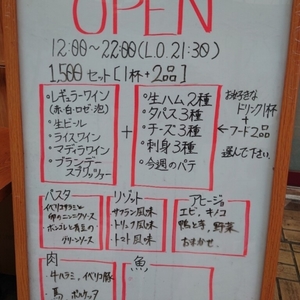 OPEN
12:00〜22:00(L.O.21:30)
1,500 セット[1杯+2品]
・レギュラーワイン
(赤・白・ロゼ・泡)
・生ビール
・ライスワイン
・マディラワイン
・ブランデー
+
・生ハム2種
・タパス3種
・チーズ3種
・刺身3種
・今週のパテ
お好きな
ドリンク1杯
+
フード2品
選んで下さい。
パスタ
・イベリコサラミと
卵のニンニクソース
グリーンソース
リゾット
・サフラン風味
・トリュフ風味
・トマト風味
アヒージョ
エビ、キノコ
鴨と季、野菜
おまかせ
肉
・牛ハラミ、イベリコ豚
・馬
魚